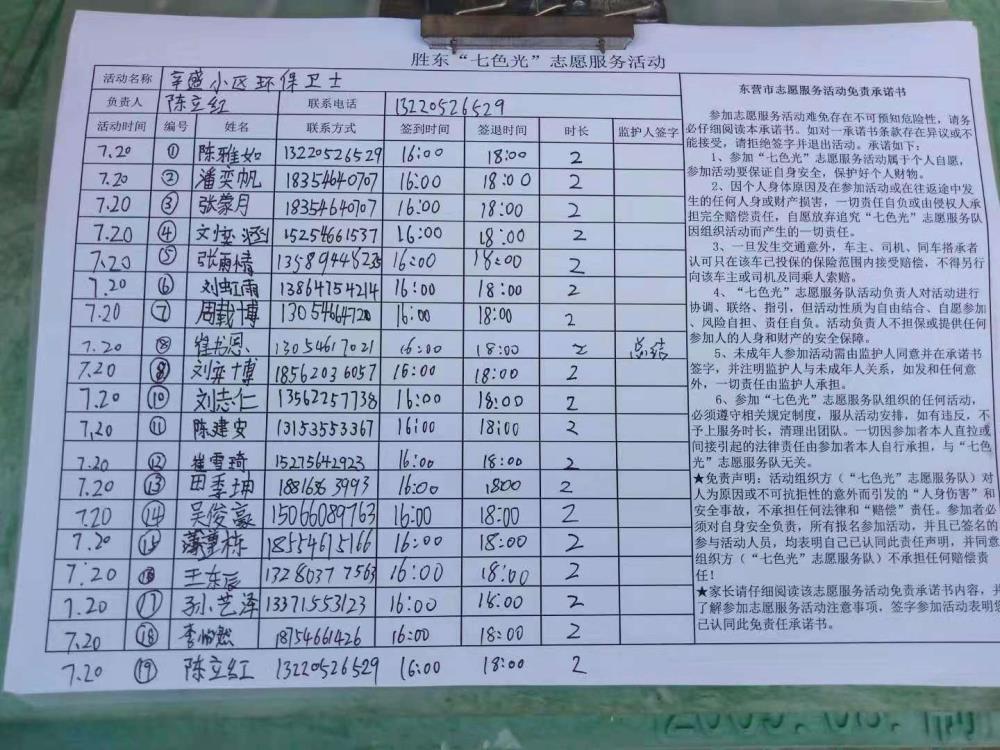 胜东“七色光”志愿服务活动
活动名称 辛盛小区环保卫士
负责人 陈立红 联系电话 13220526529
活动时间 编号 姓名 联系方式 签到时间 签退时间 时长 监护人签字
7.20 ① 陈雅如 13220526529 16:00 18:00 2
7.20 ② 潘奕帆 18354640707 16:00 18:00 2
7.20 ③ 张蒙月 18354640707 16:00 18:00 2
7.20 ④ 刘奕涵 15254661537 16:00 18:00 2
7.20 ⑤ 张雨晴 16:00 18:00 2
7.20 ⑥ 刘虹雨 13864754214 16:00 18:00 2
7.20 ⑦ 周载博 16:00 18:00 2
7.20 ⑧ 崔书恩 13054617021 16:00 18:00 2 总结
7.20 ⑨ 刘奕博 18562036057 16:00 18:00 2
7.20 ⑩ 刘志仁 13562257738 16:00 18:00 2
7.20 ⑪ 陈建安 13153553367 16:00 18:00 2
7.20 ⑫ 崔雪琦 15275642923 16:00 18:00 2
7.20 ⑬ 田季坤 16:00 1800 2
7.20 ⑭ 吴俊豪 15066089763 16:00 18:00 2
7.20 ⑮ 栋 18554615166 16:00 18:00 2
7.20 ⑯ 王东辰 13280377563 16:00 18:00 2
7.20 ⑰ 孙艺泽 13371553123 16:00 18:00 2
7.20 ⑱ 李怡然 18754661426 16:00 18:00 2
7.20 ⑲ 陈立红 13220526529 16:00 18:00 2
东营市志愿服务活动免责承诺书
参加志愿服务活动难免存在不可预知危险性，请务
必仔细阅读本承诺书。如对一承诺书条款存在异议或不
能接受，请拒绝签字并退出活动。承诺如下：
1、参加“七色光”志愿服务活动属于个人自愿，
参加活动要保证自身安全，保护好个人财物。
2、因个人身体原因及在参加活动或在往返途中发
生的任何人身或财产损害，一切责任自负或由侵权人承
担完全赔偿责任，自愿放弃追究“七色光”志愿服务队
因组织活动而产生的一切责任。
3、一旦发生交通意外，车主、司机、同车搭承者
认可只在该车已投保的保险范围内接受赔偿，不得另行
向该车主或司机及同乘人索赔。
4、“七色光”志愿服务队活动负责人对活动进行
协调、联络、指引，但活动性质为自由结合、自愿参加
、风险自担、责任自负。活动负责人不担保或提供任何
参加人的人身和财产的安全保障。
5、未成年人参加活动需由监护人同意并在承诺书
签字，并注明监护人与未成年人关系，如发和任何意
外，一切责任由监护人承担。
6、参加“七色光”志愿服务队组织的任何活动，
必须遵守相关规定制度，服从活动安排，如有违反，不
予上服务时长，清理出团队。一切因参加者本人直拉或
间接引起的法律责任由参加者本人自行承担，与“七色
光”志愿服务队无关。
★免责声明：活动组织方（“七色光”志愿服务队）对
人为原因或不可抗拒性的意外而引发的“人身伤害”和
安全事故，不承担任何法律和“赔偿”责任。参加者必
须对自身安全负责，所有报名参加活动，并且已签名的
参与活动人员，均表明自己已认同此责任声明，并同意
组织方（“七色光”志愿服务队）不承担任何赔偿责
任！
★家长请仔细阅读该志愿服务活动免责承诺书内容，并
了解参加志愿服务活动注意事项，签字参加活动表明您
已认同此免责任承诺书。